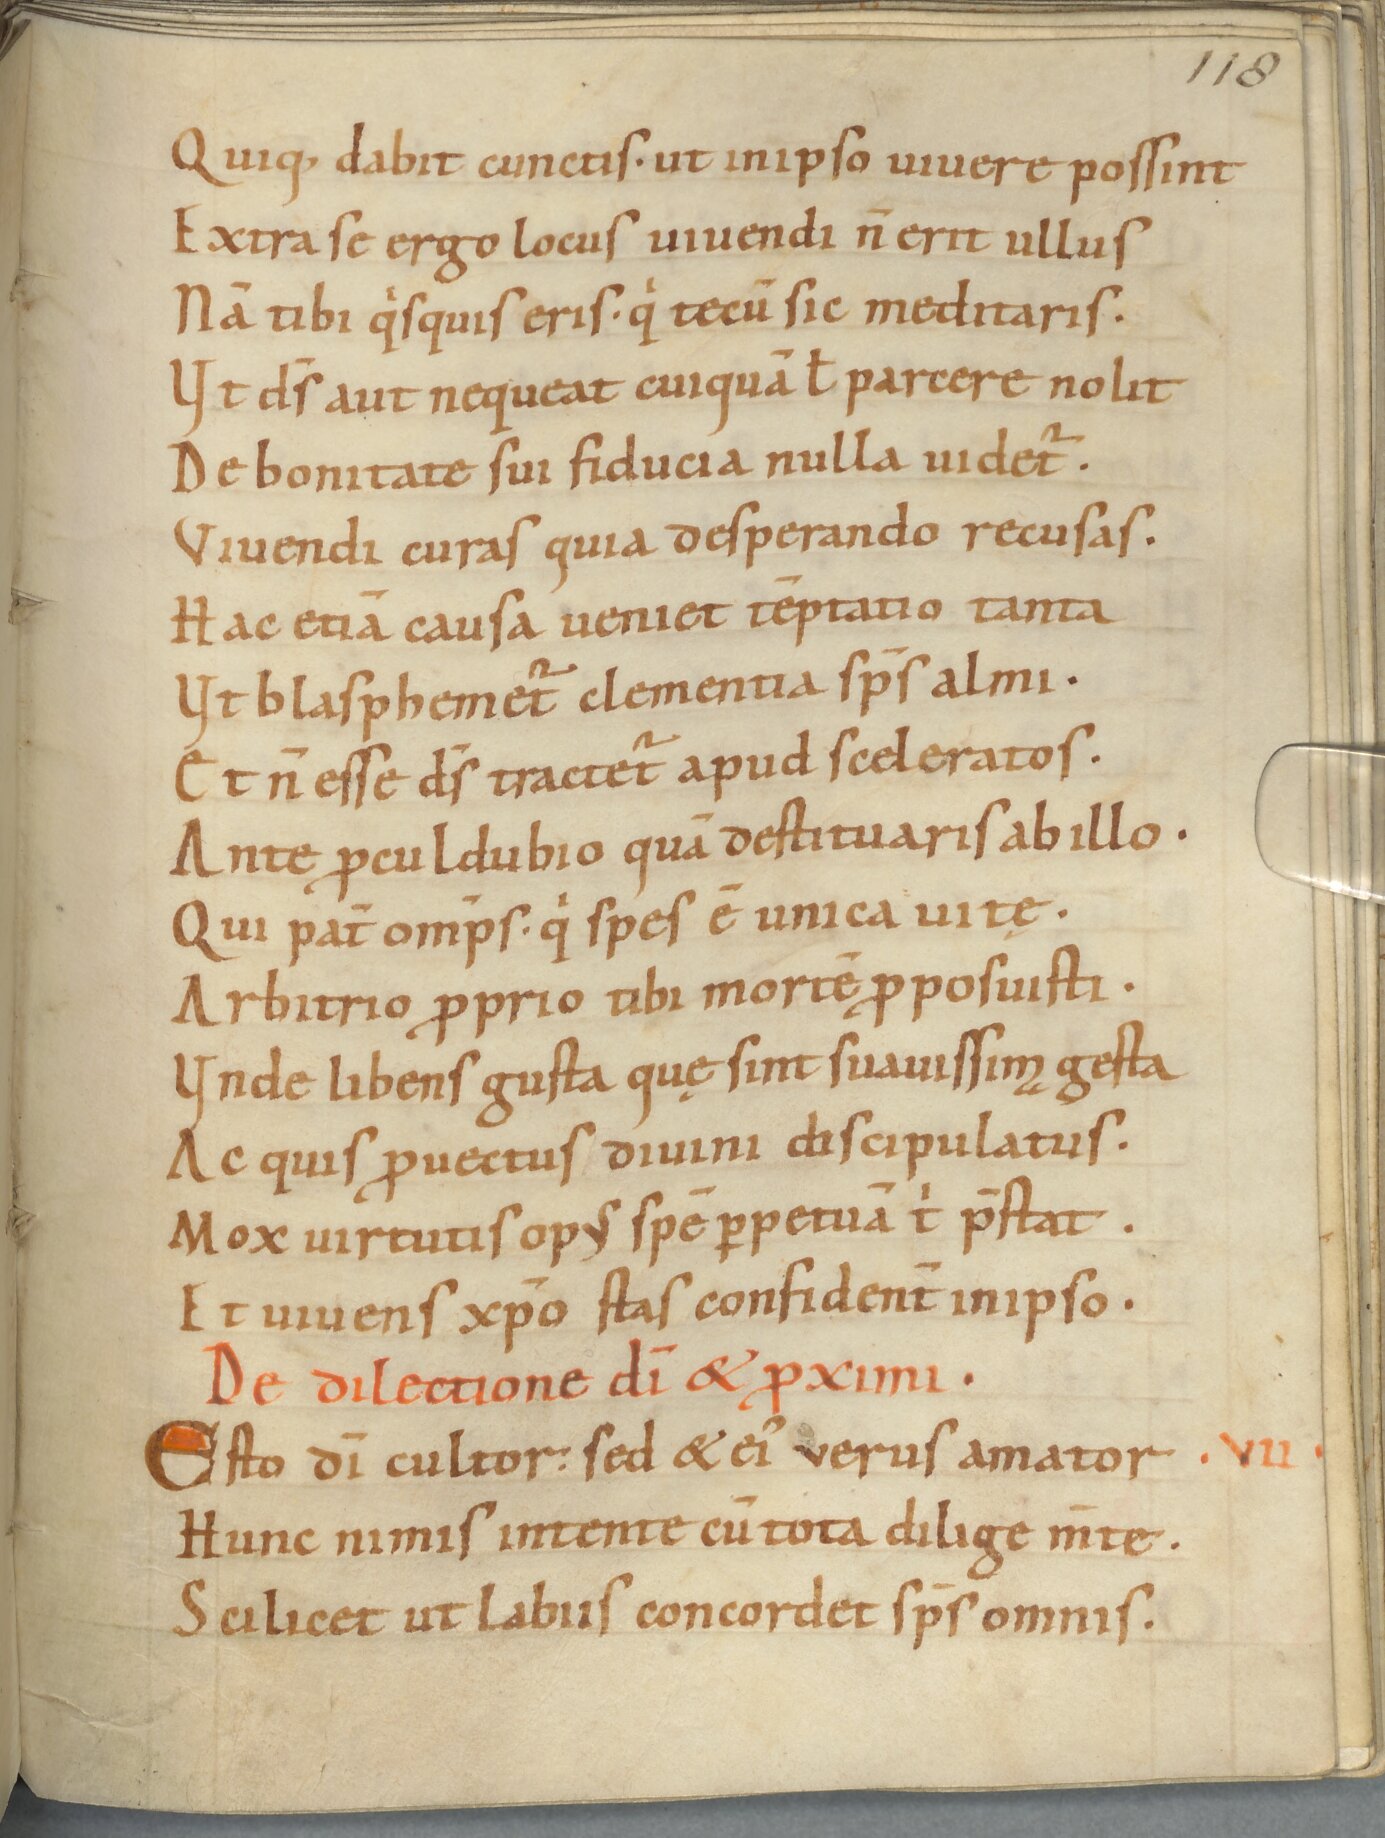 118
Quiq, dabit cunctis · ut in ipso uiuere possint
Extra se ergo locus uiuendi n̄ erit ullus
Nā tibi qͥsquis eris · qͥ tecū sic meditaris ·
Vt ds̄ aut nequeat cuiquā ł parcere nolit
De bonitate sui fiducia nulla uidet᷑ ·
Viuendi curas quia desperando recusas ·
Hac etiā causa ueniet tēptatio tanta
Vt blasphemet᷑ clementia sp̄s almi ·
Et n̄ esse ds̄ tractet᷑ apud sceleratos ·
Ante ꝓculdubio quā destituaris ab illo ·
Qui pat̄ omp̄s · qͥ spes ē unica uitę ·
Arbitrio ꝓprio tibi mortē ꝓposuisti ·
Vnde libens gusta quę sint suauissimę gesta
Ac quis ꝓuectus diuini discipulatus ·
Mox uirtutis opꝰ spē ꝑpetuā tͥ p̄stat ·
Et uiuens xp̄o stas confident̄ in ipso ·
De dilectione dī & ꝓximi ·
Esto dī cultor: sed & eiꝰ verus amator · VII ·
Hunc nimis intente cū tota dilige m̄te ·
Scilicet ut labiis concordet sp̄s omnis ·